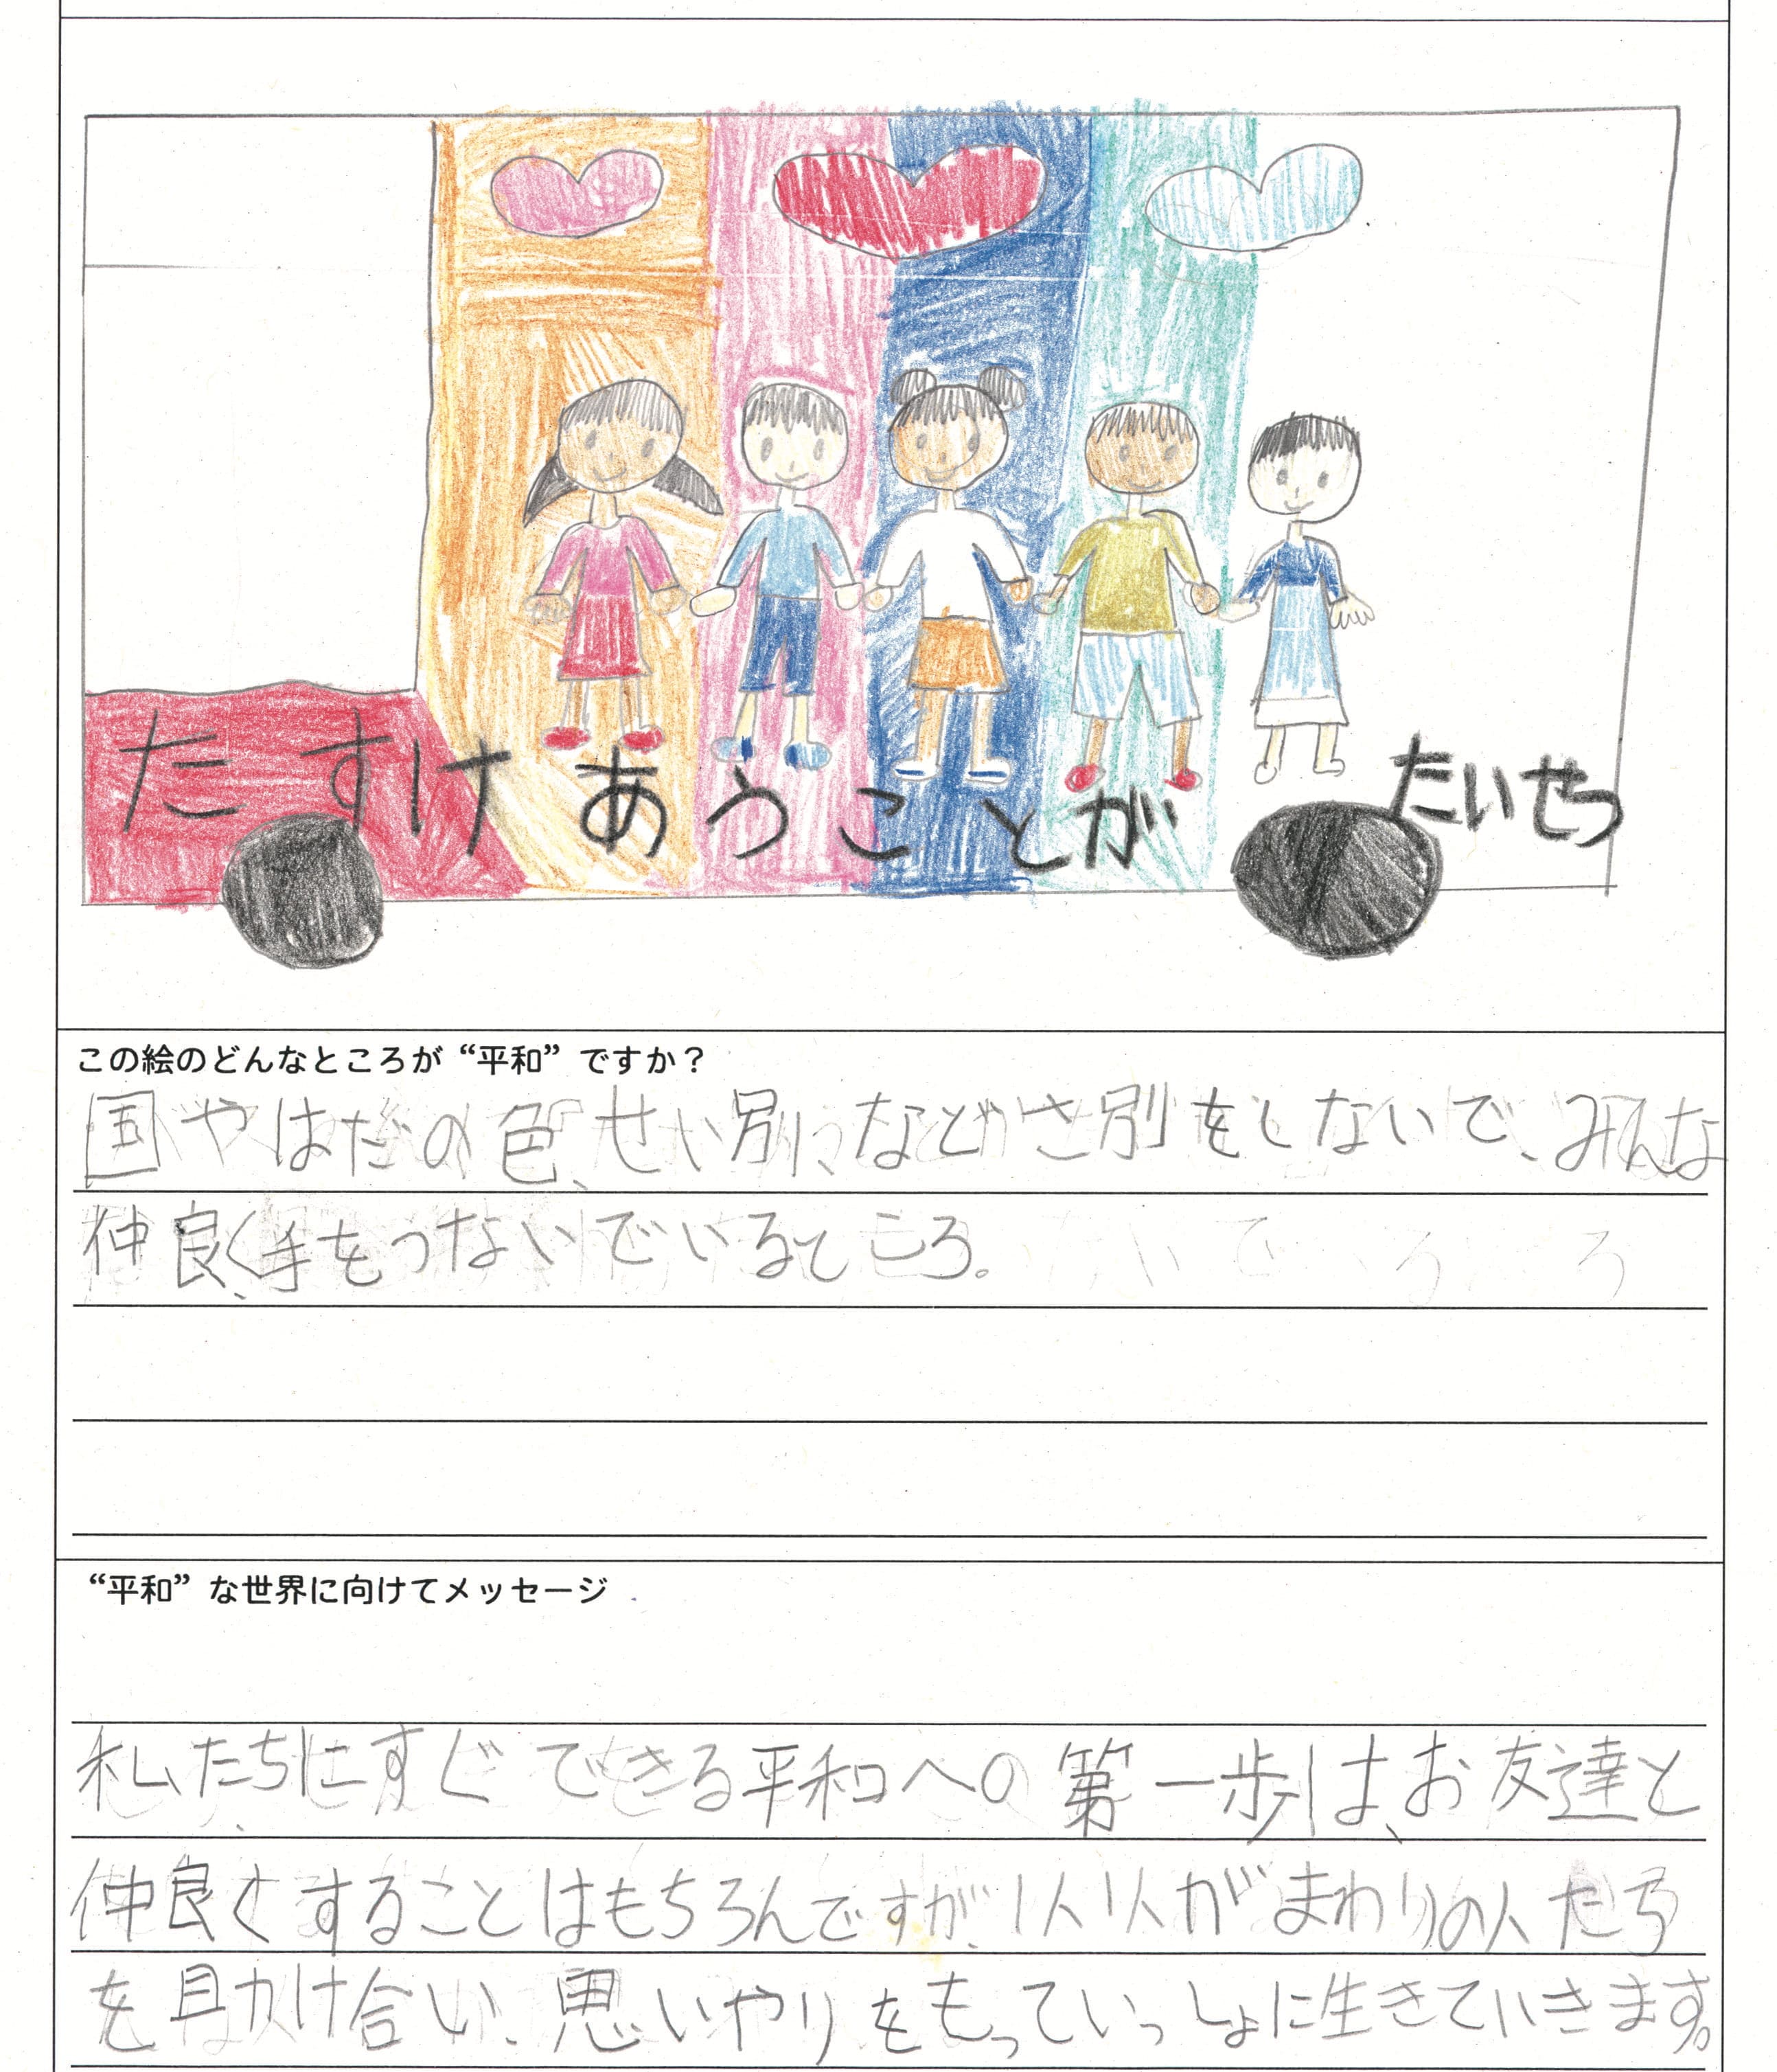 たすけあうことが
たいせつ
この絵のどんなところが“平和”ですか？
国やはだの色、せい別、などがさ別をしないで、みんな
仲良く、手をつないでいるところ。
“平和”な世界に向けてメッセージ
私たちにすぐできる平和への第一歩は、お友達と
仲良くすることはもちろんですが、1人1人がまわりの人たち
を助け合い、思いやりをもっていっしょに生きていきます。